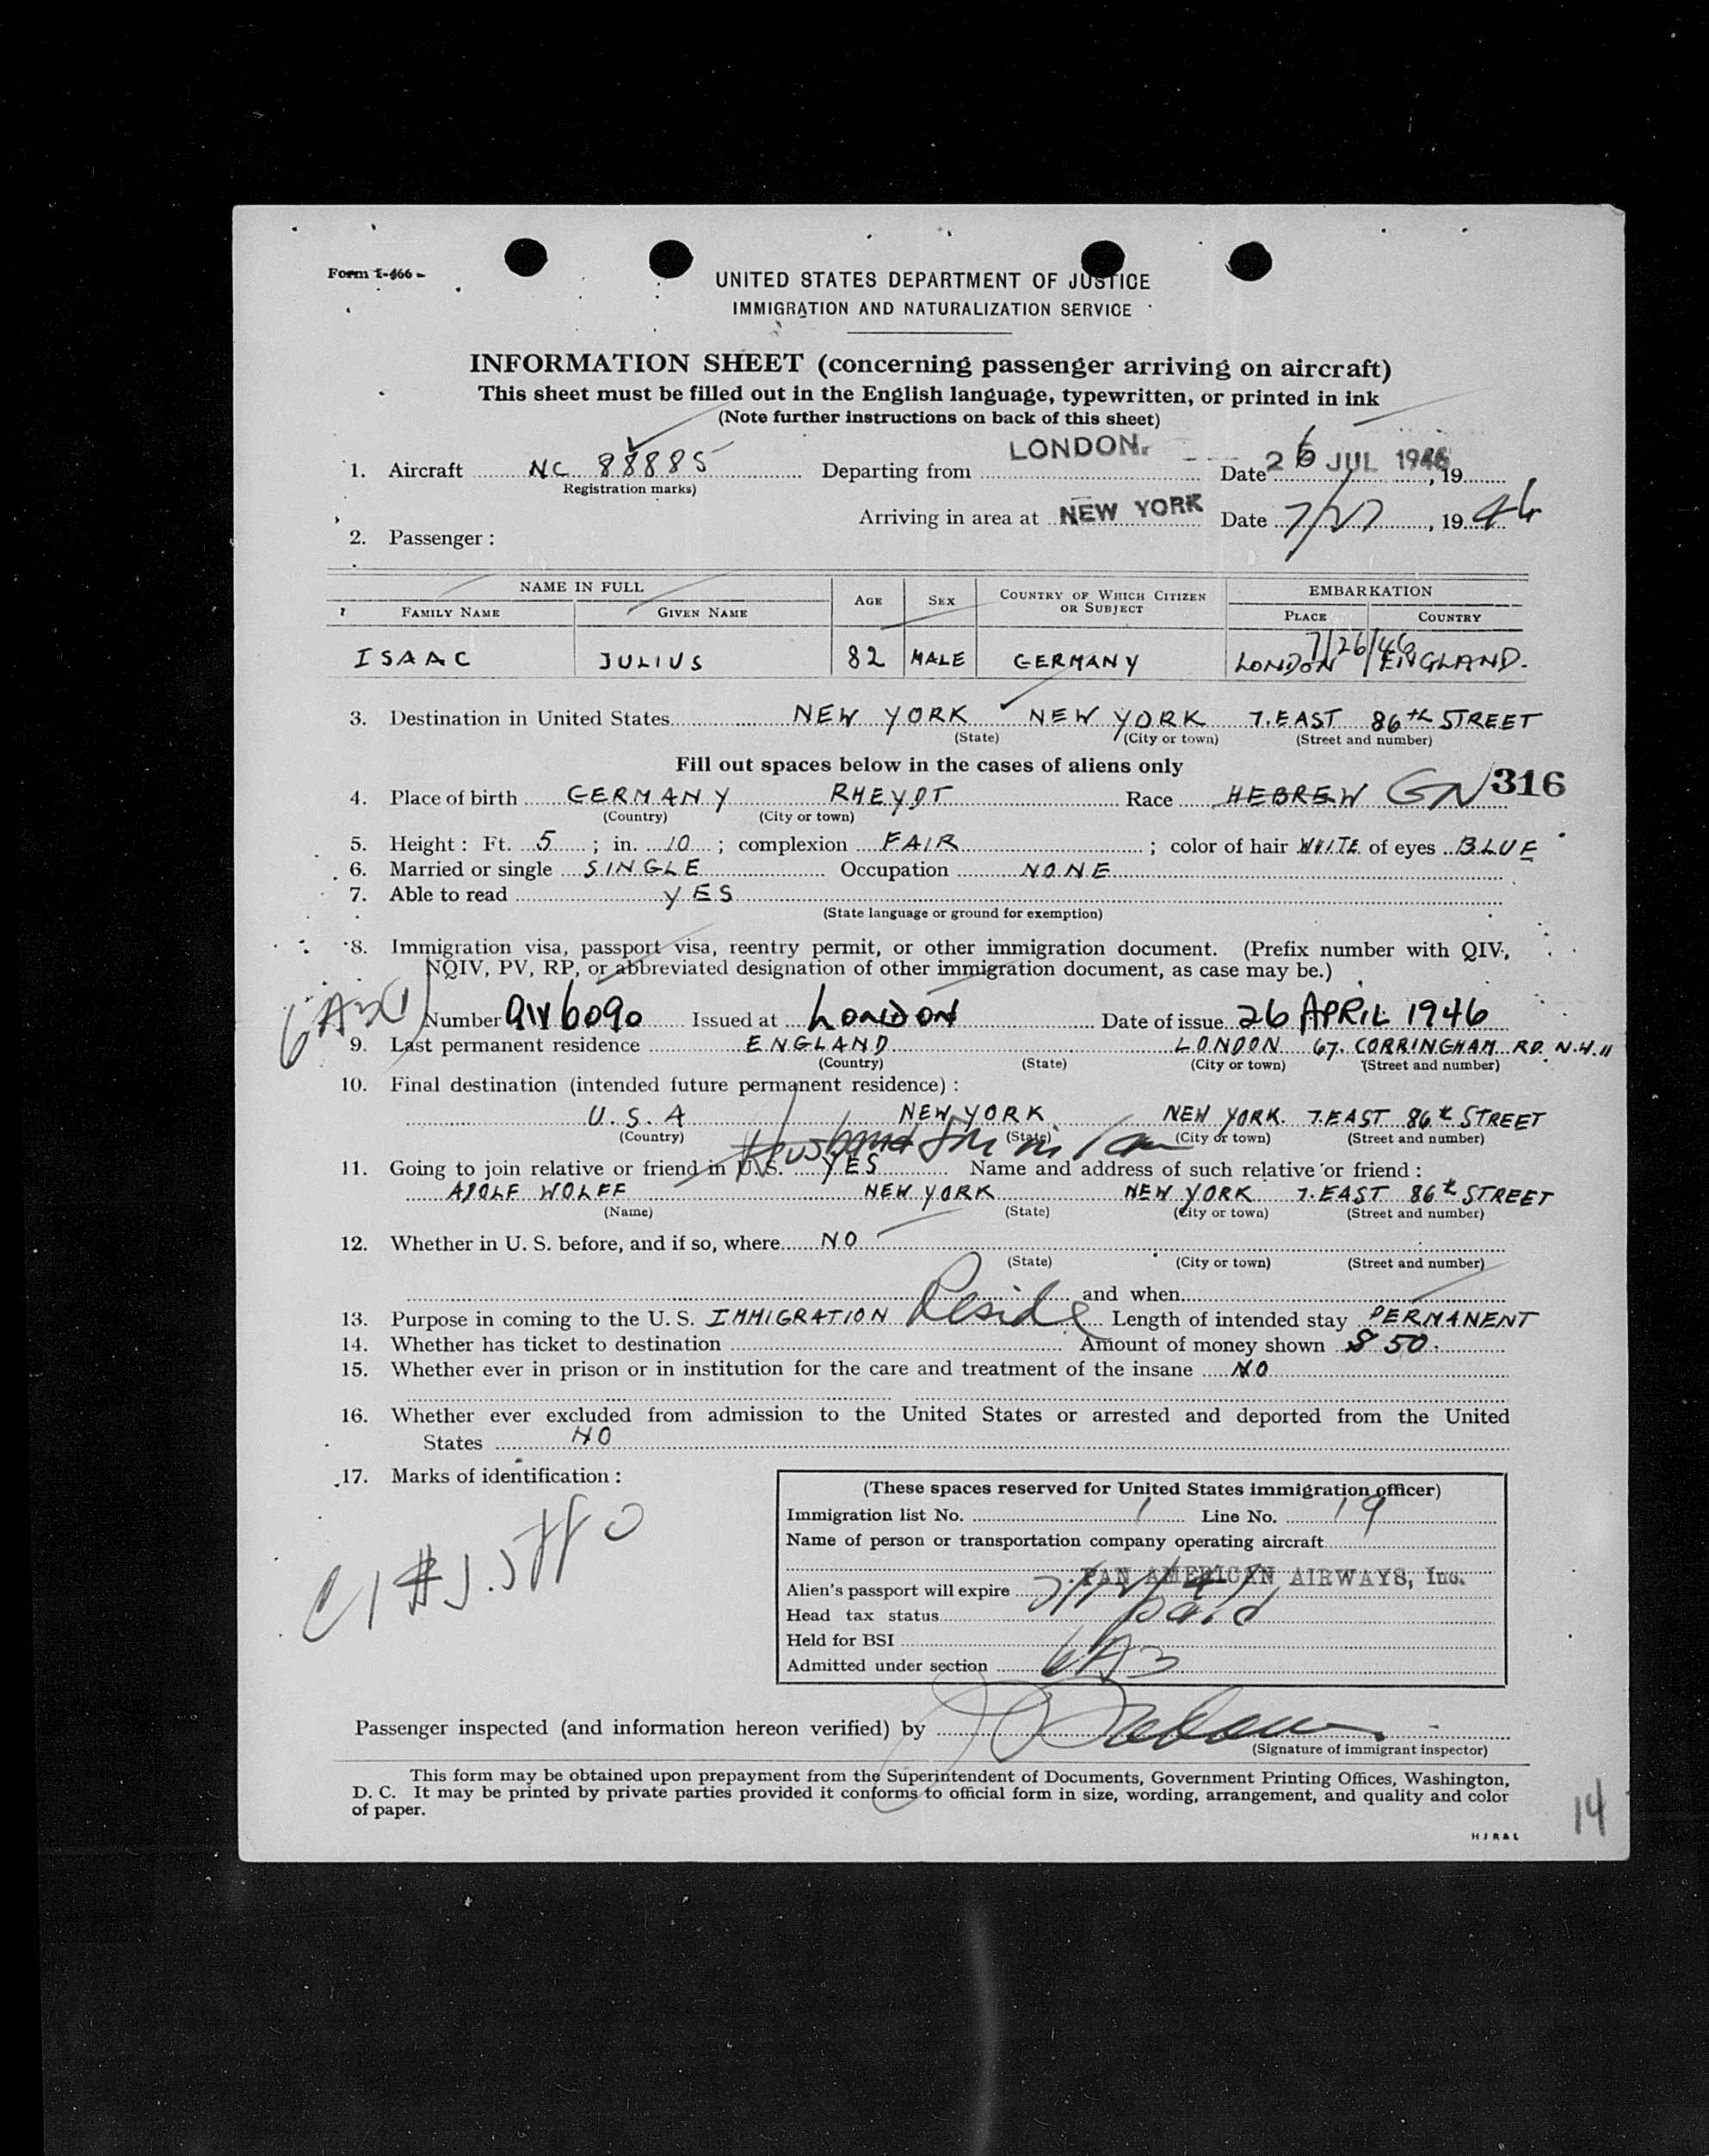 Form I-466
UNITED STATES DEPARTMENT OF JUSTICE
IMMIGRATION AND NATURALIZATION SERVICE
INFORMATION SHEET (concerning passenger arriving on aircraft)
This sheet must be filled out in the English language, typewritten, or printed in ink
(Note further instructions on back of this sheet)
1. Aircraft NC 88885 Departing from LONDON. Date 26 JUL 1946, 19
(Registration marks)
Arriving in area at NEW YORK Date 7/27, 1946
2. Passenger :
NAME IN FULL AGE SEX COUNTRY OF WHICH CITIZEN OR SUBJECT EMBARKATION
FAMILY NAME GIVEN NAME PLACE COUNTRY
7/26/46
ISAAC JULIUS 82 MALE GERMANY LONDON ENGLAND.
3. Destination in United States NEW YORK NEW YORK 7. EAST 86th STREET
(State) (City or town) (Street and number)
Fill out spaces below in the cases of aliens only
4. Place of birth GERMANY RHEYDT Race HEBREW GN 316
(Country) (City or town)
5. Height : Ft. 5 ; in. 10 ; complexion FAIR ; color of hair WHITE of eyes BLUE
6. Married or single SINGLE Occupation NONE
7. Able to read YES
(State language or ground for exemption)
8. Immigration visa, passport visa, reentry permit, or other immigration document. (Prefix number with QIV,
NQIV, PV, RP, or abbreviated designation of other immigration document, as case may be.)
6A3(1)
Number QIV 6090 Issued at LONDON Date of issue 26 APRIL 1946
9. Last permanent residence ENGLAND LONDON 67. CORRINGHAM RD. N.W.11
(Country) (State) (City or town) (Street and number)
10. Final destination (intended future permanent residence) :
U.S.A NEW YORK NEW YORK. 7. EAST 86th STREET
(Country) (State) (City or town) (Street and number)
Husband
11. Going to join relative or friend in U.S. YES Name and address of such relative or friend :
ADOLF WOLFF NEW YORK NEW YORK 7. EAST 86th STREET
(Name) (State) (City or town) (Street and number)
12. Whether in U. S. before, and if so, where NO
(State) (City or town) (Street and number)
and when
13. Purpose in coming to the U. S. IMMIGRATION Reside Length of intended stay PERMANENT
14. Whether has ticket to destination Amount of money shown $ 50.
15. Whether ever in prison or in institution for the care and treatment of the insane NO
16. Whether ever excluded from admission to the United States or arrested and deported from the United
States NO
17. Marks of identification :
(These spaces reserved for United States immigration officer)
Immigration list No. 1 Line No. 19
Name of person or transportation company operating aircraft
PAN AMERICAN AIRWAYS, Inc.
Alien's passport will expire
Head tax status paid
Held for BSI
Admitted under section 6A3
Passenger inspected (and information hereon verified) by
(Signature of immigrant inspector)
This form may be obtained upon prepayment from the Superintendent of Documents, Government Printing Offices, Washington,
D. C. It may be printed by private parties provided it conforms to official form in size, wording, arrangement, and quality and color
of paper.
HJRAL
14